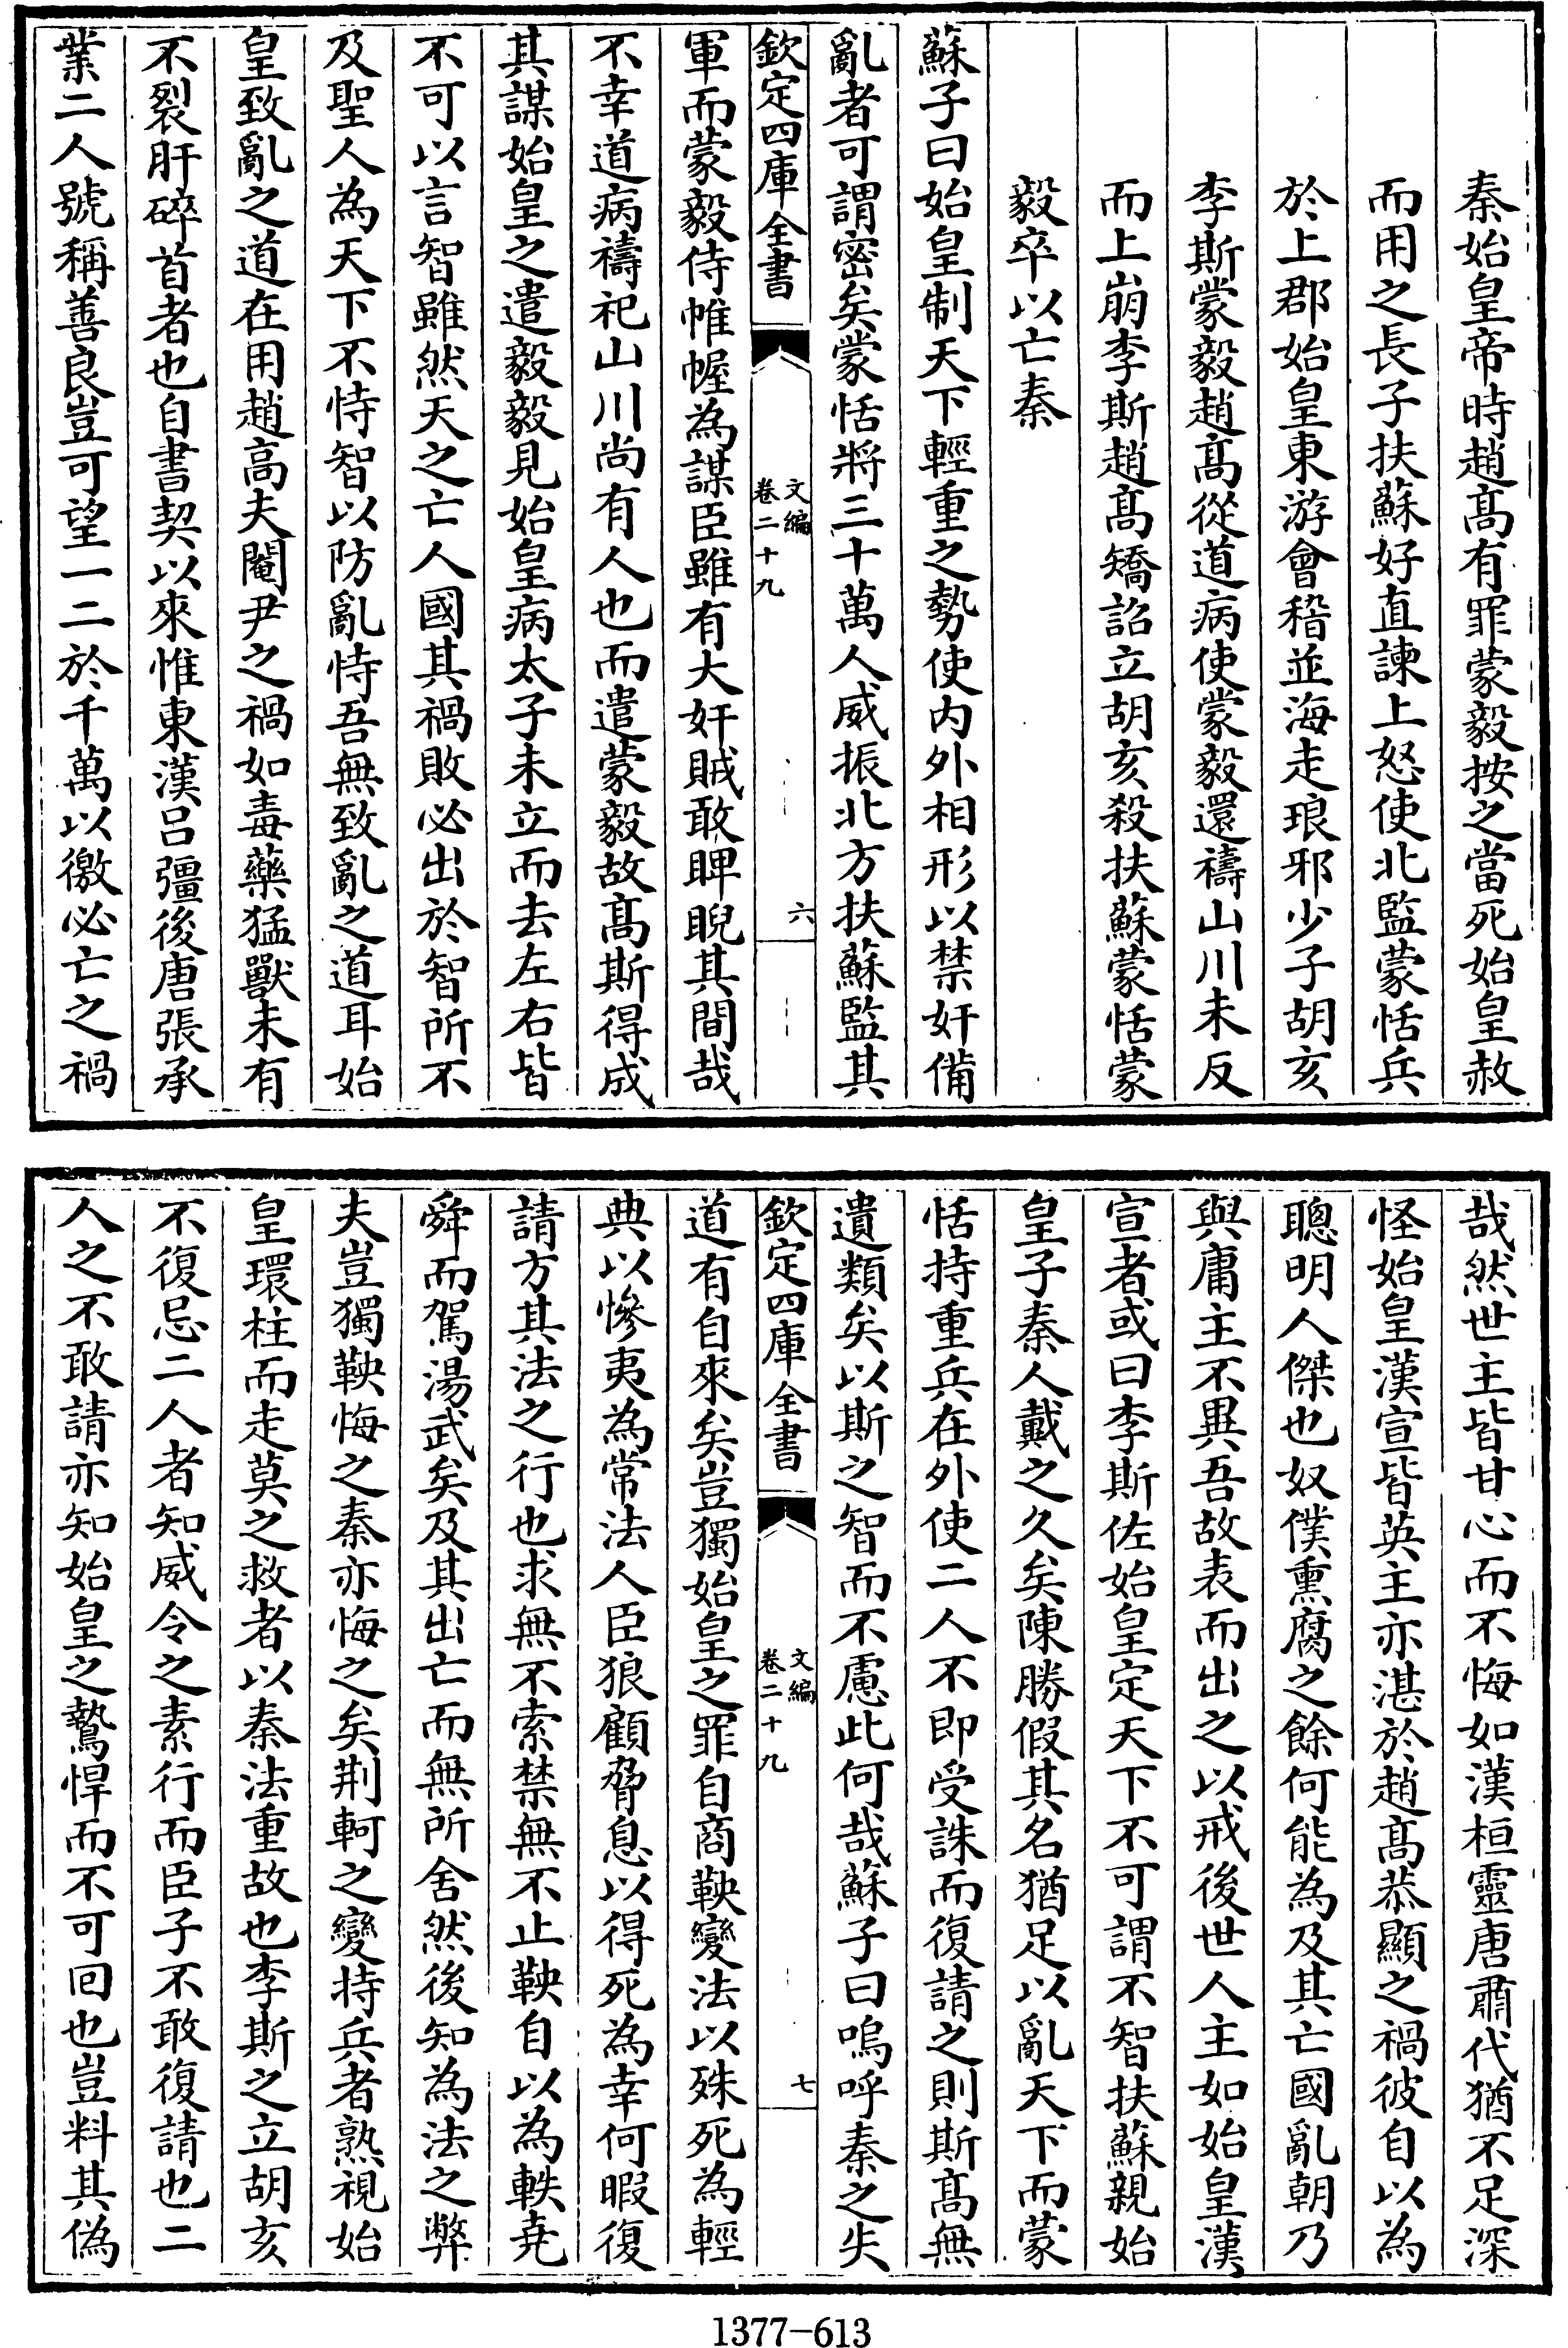 秦始皇帝時趙髙有罪蒙毅按之當死始皇赦
而用之長子扶蘇好直諫上怒使北監蒙恬兵
於上郡始皇東游會稽並海走琅邪少子胡亥
李斯蒙毅趙髙從道病使蒙毅還禱山川未反
而上崩李斯趙髙矯詔立胡亥殺扶蘇蒙恬蒙
毅卒以亡秦
蘇子曰始皇制天下輕重之勢使内外相形以禁奸備
亂者可謂密矣蒙恬將三十萬人威振北方扶蘇監其
欽定四庫全書
文編
卷二十九
六
軍而蒙毅侍帷幄為謀臣雖有大奸賊敢睥睨其間哉
不幸道病禱祀山川尚有人也而遣蒙毅故髙斯得成
其謀始皇之遣毅毅見始皇病太子未立而去左右皆
不可以言智雖然天之亡人國其禍敗必出於智所不
及聖人為天下不恃智以防亂恃吾無致亂之道耳始
皇致亂之道在用趙高夫閹尹之禍如毒藥猛獸未有
不裂肝碎首者也自書契以來惟東漢吕彊後唐張承
業二人號稱善良豈可望一二於千萬以徼必亡之禍
哉然世主皆甘心而不悔如漢桓靈唐肅代猶不足深
怪始皇漢宣皆英主亦湛於趙髙恭顯之禍彼自以為
聰明人傑也奴僕熏腐之餘何能為及其亡國亂朝乃
與庸主不異吾故表而出之以戒後世人主如始皇漢
宣者或曰李斯佐始皇定天下不可謂不智扶蘇親始
皇子秦人戴之久矣陳勝假其名猶足以亂天下而蒙
恬持重兵在外使二人不即受誅而復請之則斯髙無
遺類矣以斯之智而不慮此何哉蘇子曰嗚呼秦之失
欽定四庫全書
文編
卷二十九
七
道有自來矣豈獨始皇之罪自商鞅變法以殊死為輕
典以慘夷為常法人臣狼顧脅息以得死為幸何暇復
請方其法之行也求無不索禁無不止鞅自以為軼堯
舜而駕湯武矣及其出亡而無所舍然後知為法之弊
夫豈獨鞅悔之秦亦悔之矣荆軻之變持兵者熟視始
皇環柱而走莫之救者以秦法重故也李斯之立胡亥
不復忌二人者知威令之素行而臣子不敢復請也二
人之不敢請亦知始皇之鷙悍而不可回也豈料其偽
1377-613